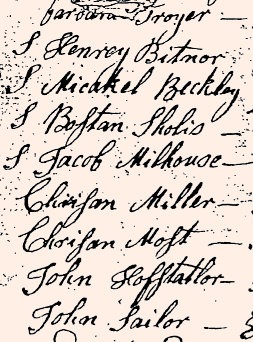 Barbara Troyer —
S Henrey Bitnor
S Micakel Beckley
S Bostan Sholis —
S Jacob Milhouse —
Chrisan Miller —
Chrisan Most —
John Hofftatlor —
John Sailor —